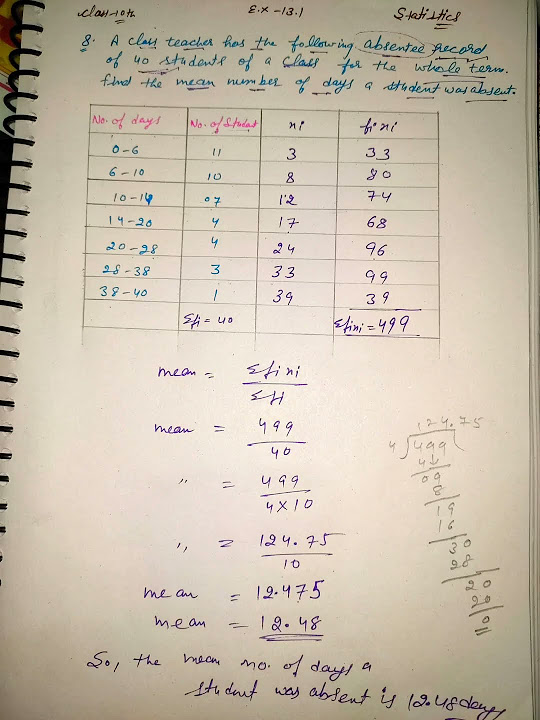 class-10th E.x -13.1 Statistics
8. A class teacher has the following absentee record
of 40 students of a class for the whole term.
find the mean number of days a student was absent.
No. of days No. of Student xi fixi
0-6 11 3 33
6-10 10 8 80
10-14 07 12 74
14-20 4 17 68
20-28 4 24 96
28-38 3 33 99
38-40 1 39 39
Σfi = 40 Σfixi = 499
mean = Σfixi
Σfi
mean = 499
40
" = 499
4x10
" = 124.75
10
mean = 12.475
mean = 12.48
124.75
4 499
4
09
8
19
16
30
28
20
20
0
So, the mean no. of days a
student was absent is 12.48 days